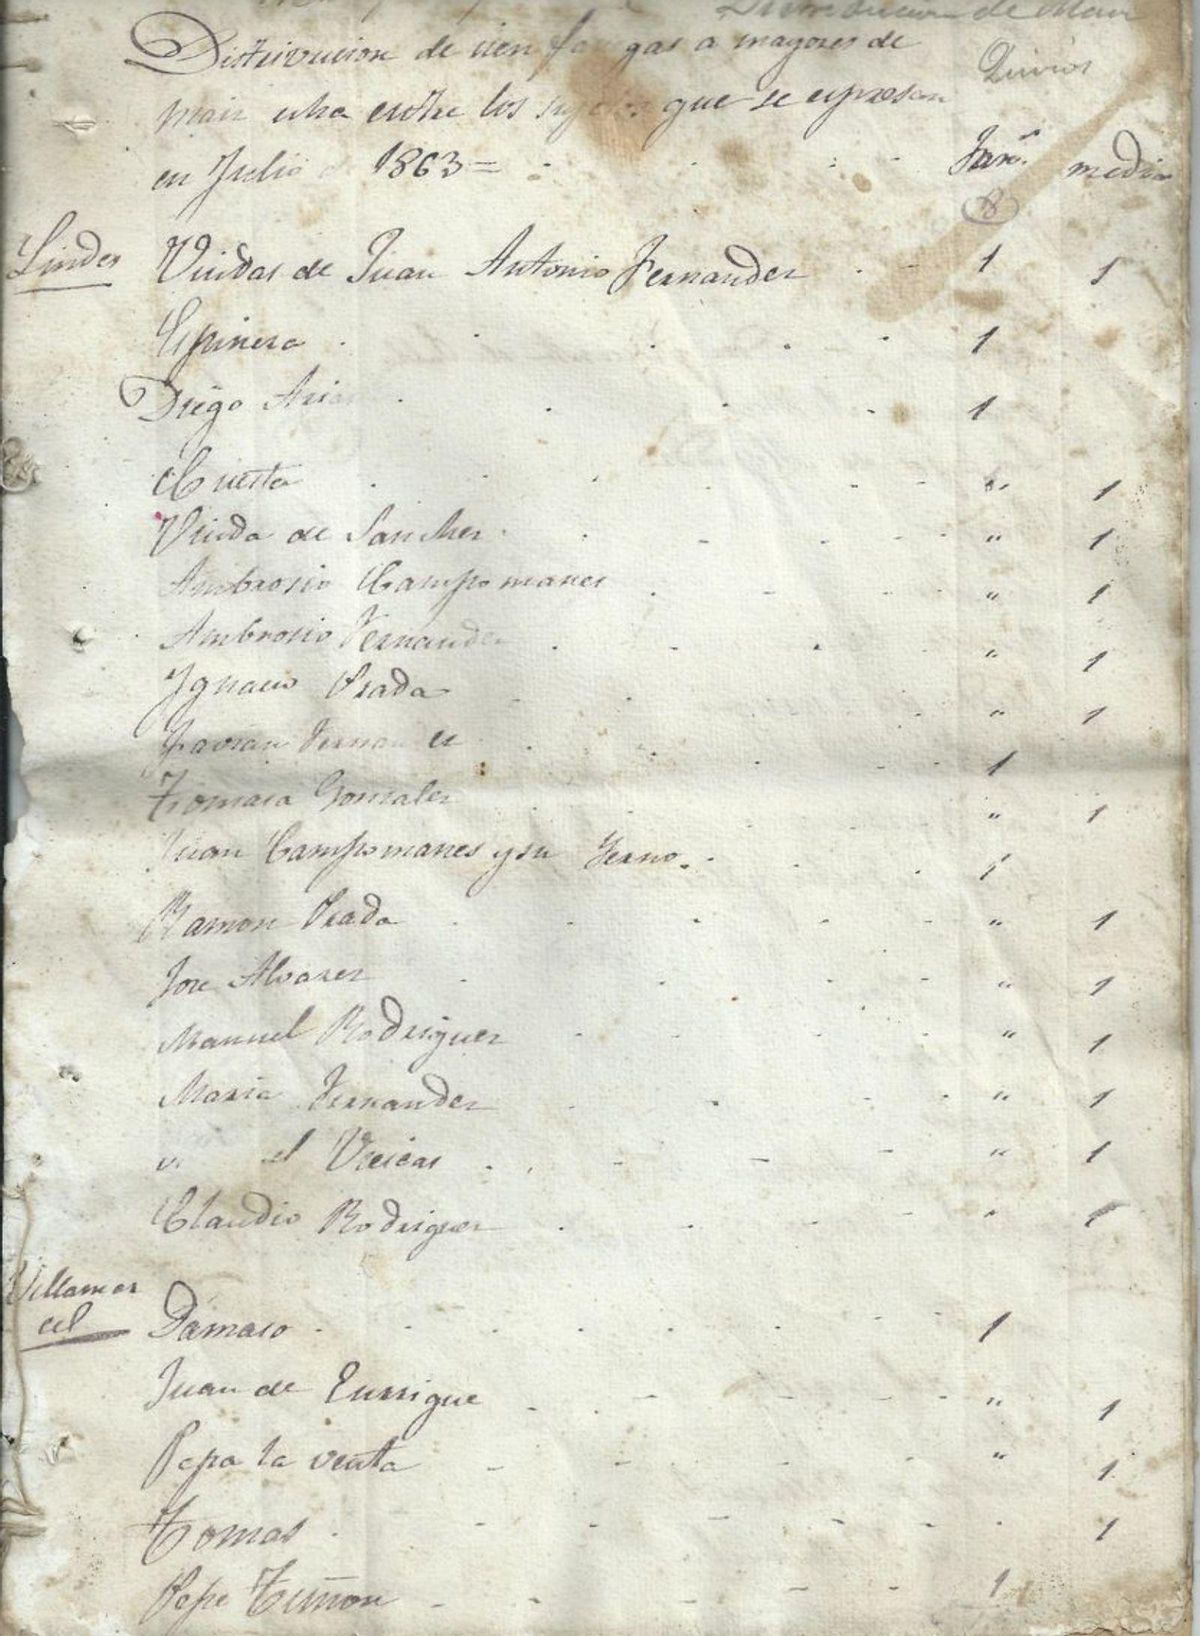 Distrivucion de Maiz
Distrivucion de cien fanegas a mayores de
Maiz echa entre los sujetos que se espresan
Quiros
en Julio de 1863=
Fan.s media
8
Lindes Viudas de Juan Antonio Fernandez 1 1
Espinera 1
Diego Arias 1
Cuesta " 1
Viuda de Sanchez " 1
Ambrosio Campomanes " 1
Ambrosio Fernandez " 1
Ygnacio Prada " 1
Fernandez 1
Tomasa Gonzalez " 1
Juan Campomanes y su Yerno 1
Ramon Prada " 1
Jose Alvarez " 1
Manuel Rodriguez " 1
Maria Fernandez " 1
el " 1
Claudio Rodriguez " 1
Villamar
cel Damaso 1
Juan de Enrrique " 1
Pepa la venta " 1
Tomas 1
Pepe Tuñon 1